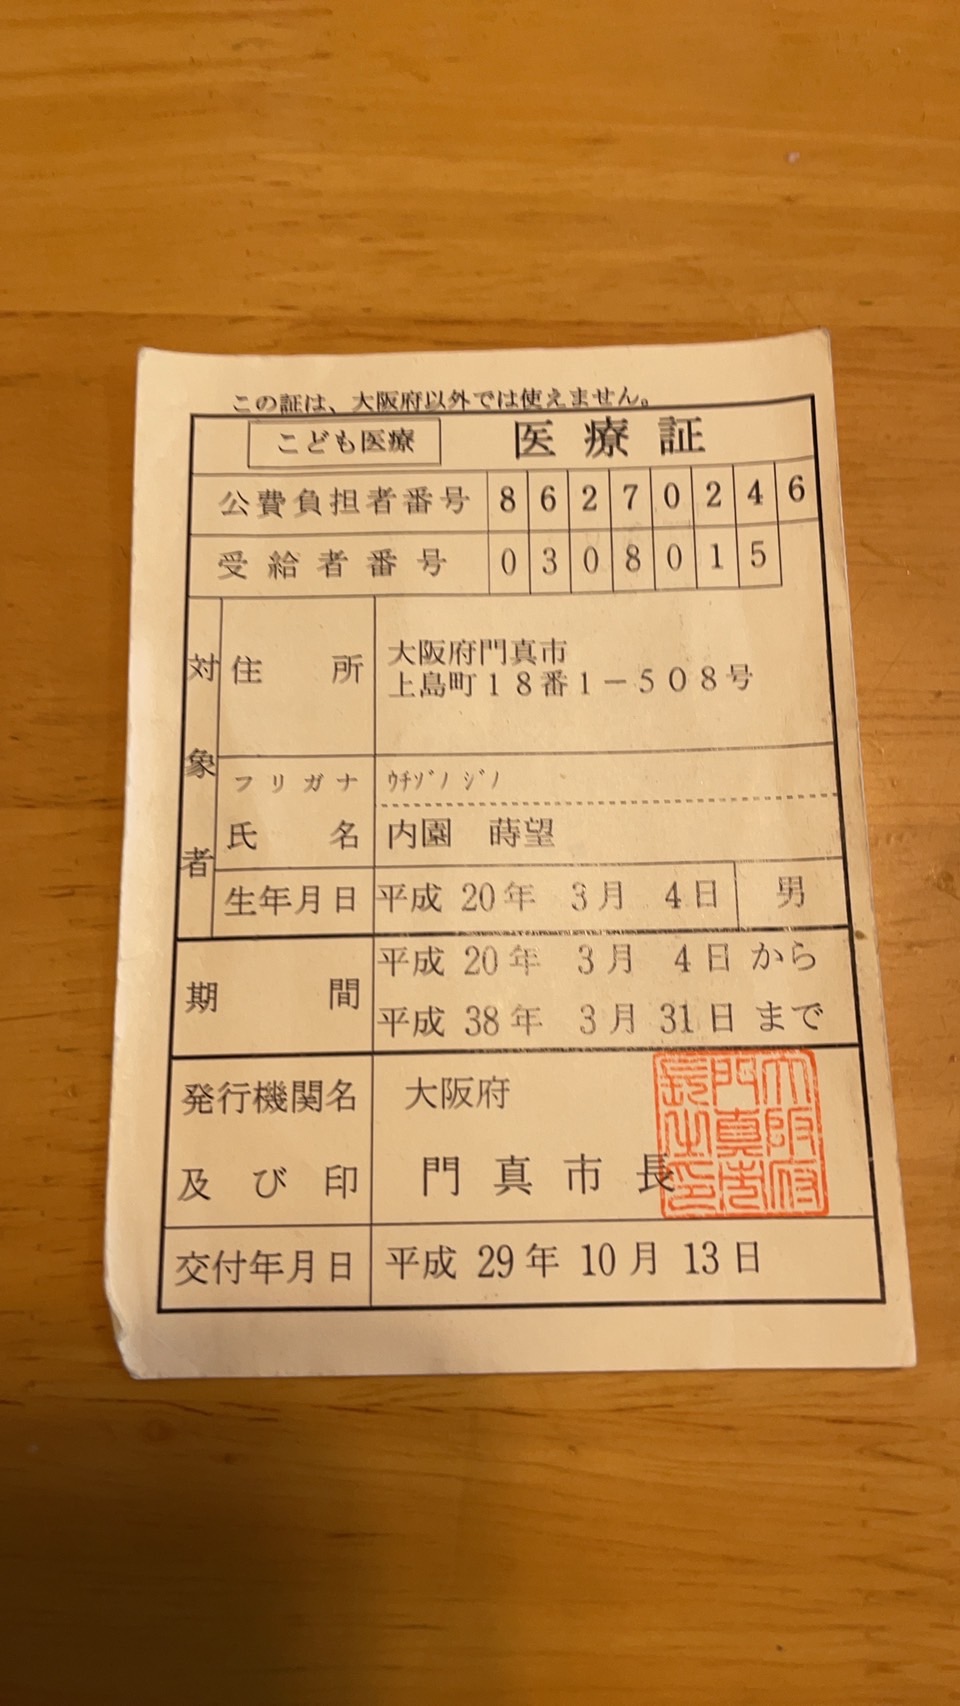 この証は、大阪府以外では使えません。
こども医療 医療証
公費負担者番号 86270246
受給者番号 0308015
対象者
住所 大阪府門真市
上島町18番1-508号
フリガナ ｳﾁｿﾞﾉ ｼﾞﾉ
氏名 内園 蒔望
生年月日 平成 20年 3月 4日 男
期間 平成 20年 3月 4日 から
平成 38年 3月 31日 まで
発行機関名 大阪府
及び印 門真市長
大阪府門真市長之印
交付年月日 平成 29年 10月 13日